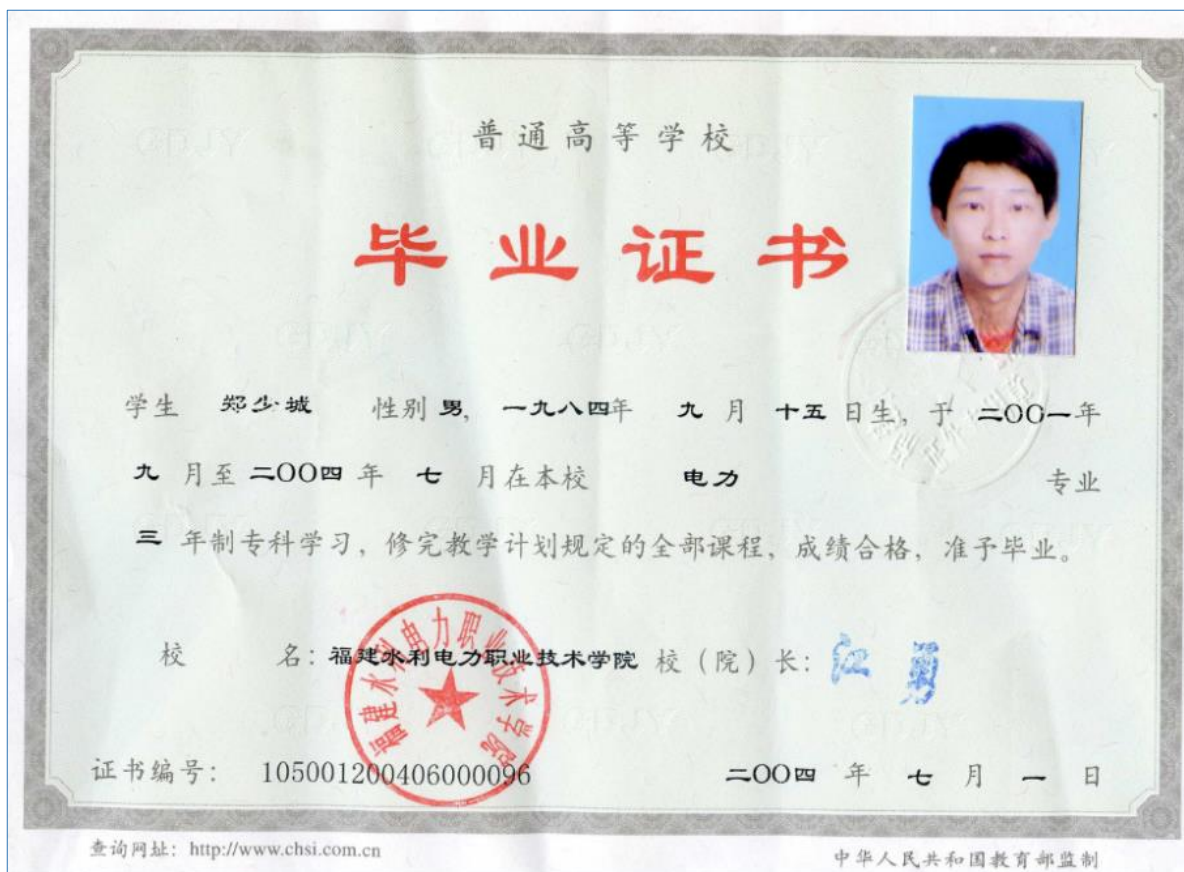 普通高等学校
毕业证书
学生 郑少城 性别 男, 一九八四年 九 月 十五 日生, 于 二〇〇一年
九 月至 二〇〇四 年 七 月在本校 电力 专业
三 年制专科学习, 修完教学计划规定的全部课程, 成绩合格, 准予毕业。
校 名: 福建水利电力职业技术学院 校(院)长: 江勇
福建水利电力职业技术学院
证书编号: 105001200406000096 二〇〇四 年 七 月 一 日
查询网址: http://www.chsi.com.cn 中华人民共和国教育部监制